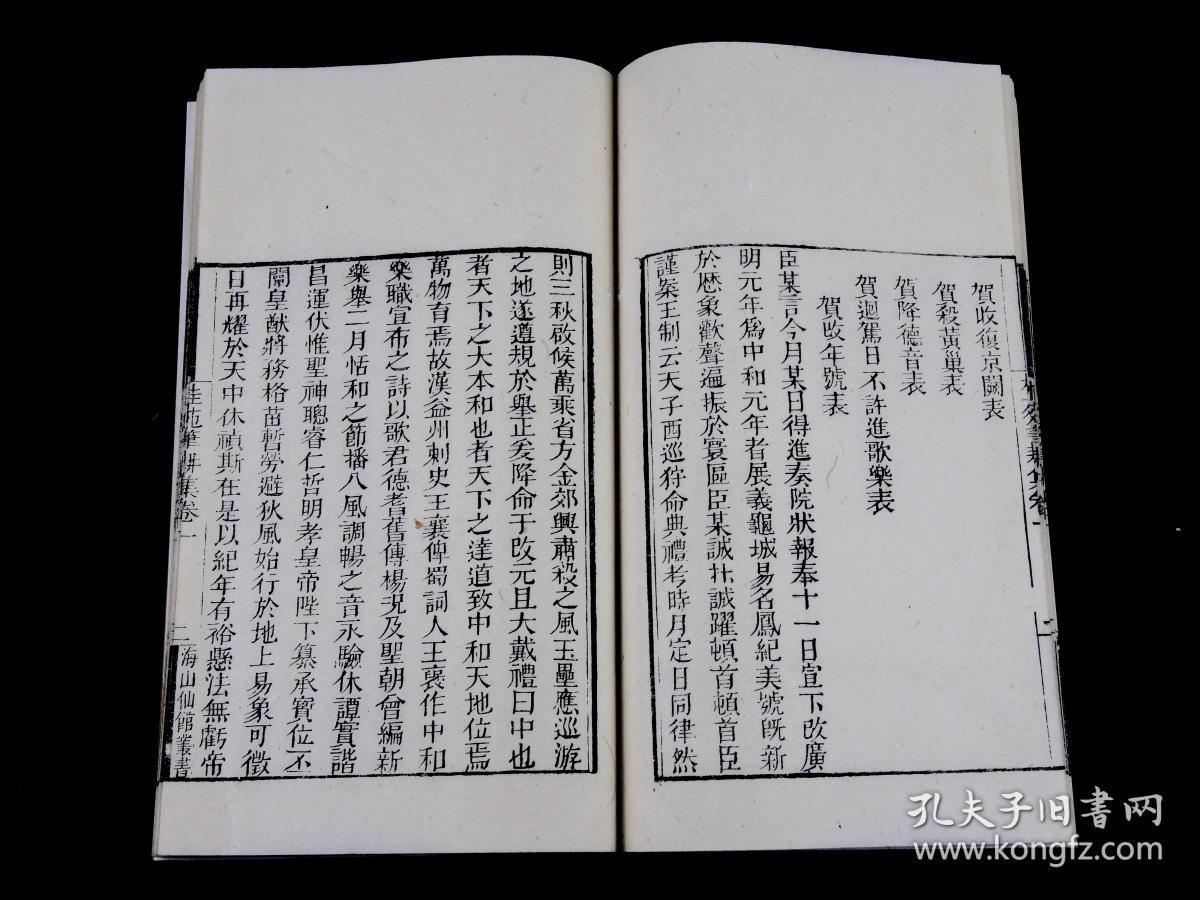 賀收復京闕表
賀殺黃巢表
賀降德音表
賀迴駕日不許進歌樂表
賀改年號表
臣某言今月某日得進奏院狀報奉十一日宣下改廣
明元年爲中和元年者展義龜城易名鳳紀美號旣新
於歷象歡聲遍振於寰區臣某誠抃誠躍頓首頓首臣
謹案王制云天子西巡狩命典禮考時月定日同律然
則三秋啟候萬乘省方金郊興肅殺之風玉壘應巡游
之地遂遵規於舉正爰降命于改元且大戴禮曰中也
者天下之大本和也者天下之達道致中和天地位焉
萬物育焉故漢益州刺史王襄俾蜀詞人王褒作中和
樂職宣布之詩以歌君德耆舊傳楊況及聖朝曾編新
樂舉二月恬和之節播八風調暢之音永驗休譚實諧
昌運伏惟聖神聰睿仁哲明孝皇帝陛下纂承寶位丕
闡皇猷將務格苗暫勞避狄風始行於地上易象可徵
日再耀於天中休禎斯在是以紀年有裕懸法無虧帝
桂苑筆耕集卷一
二
海山仙館叢書
孔夫子旧書网
www.kongfz.com